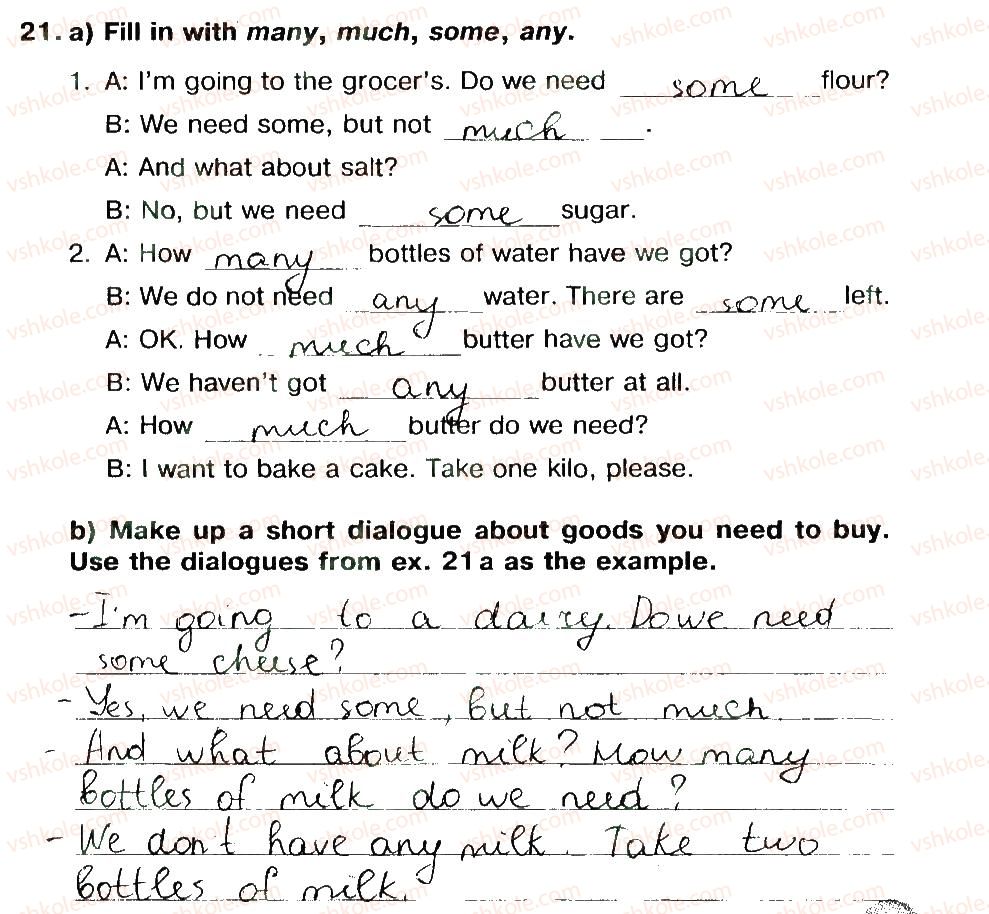 21. a) Fill in with many, much, some, any.
1. A: I'm going to the grocer's. Do we need some flour?
B: We need some, but not much.
A: And what about salt?
B: No, but we need some sugar.
2. A: How many bottles of water have we got?
B: We do not need any water. There are some left.
A: OK. How much butter have we got?
B: We haven't got any butter at all.
A: How much butter do we need?
B: I want to bake a cake. Take one kilo, please.
b) Make up a short dialogue about goods you need to buy.
Use the dialogues from ex. 21 a as the example.
- I'm going to a dairy. Do we need
some cheese?
- Yes, we need some, but not much.
- And what about milk? How many
bottles of milk do we need?
- We don't have any milk. Take two
bottles of milk.
vshkole.com